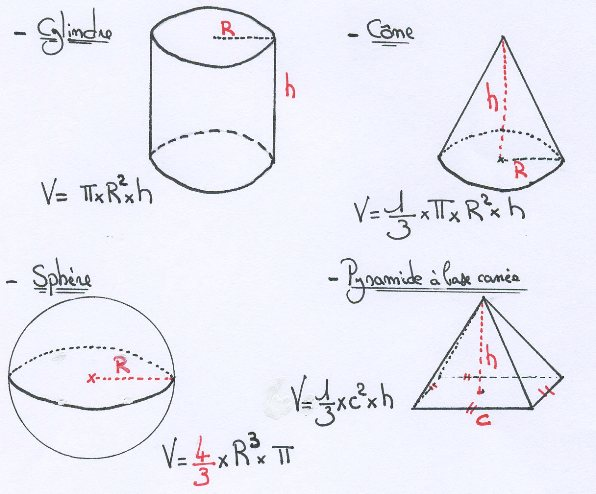 - Cylindre
R
h
V = π x R² x h
- Cône
h
R
V = 1/3 x π x R² x h
- Sphère
R
V = 4/3 x R³ x π
- Pyramide à base carrée
h
c
V = 1/3 x c² x h